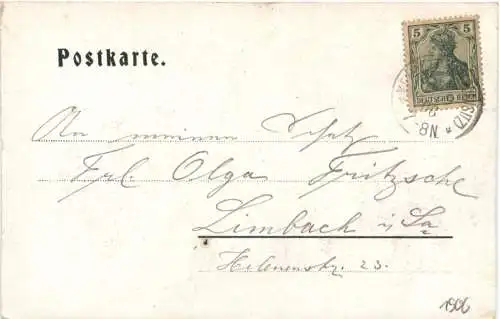 Postkarte.
5 5
DEUTSCHES REICH
8N
An meinen Schatz
Frl. Olga Fritzsche
Limbach i/Sa
Helenenstr. 23.
1906